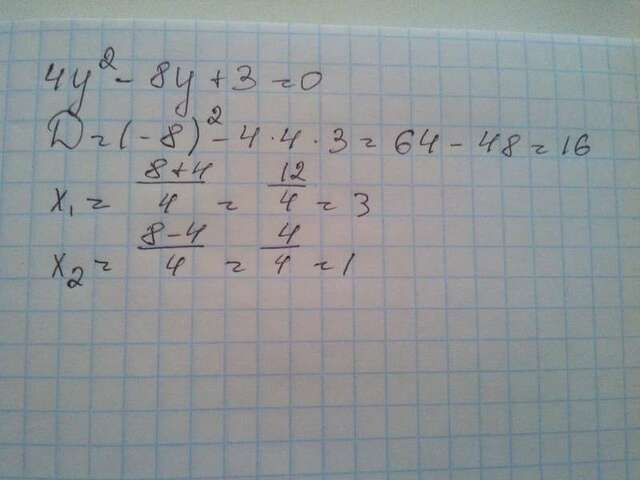 4y² - 8y + 3 = 0
D = (-8)² - 4 · 4 · 3 = 64 - 48 = 16
x₁ = (8+4)/4 = 12/4 = 3
x₂ = (8-4)/4 = 4/4 = 1